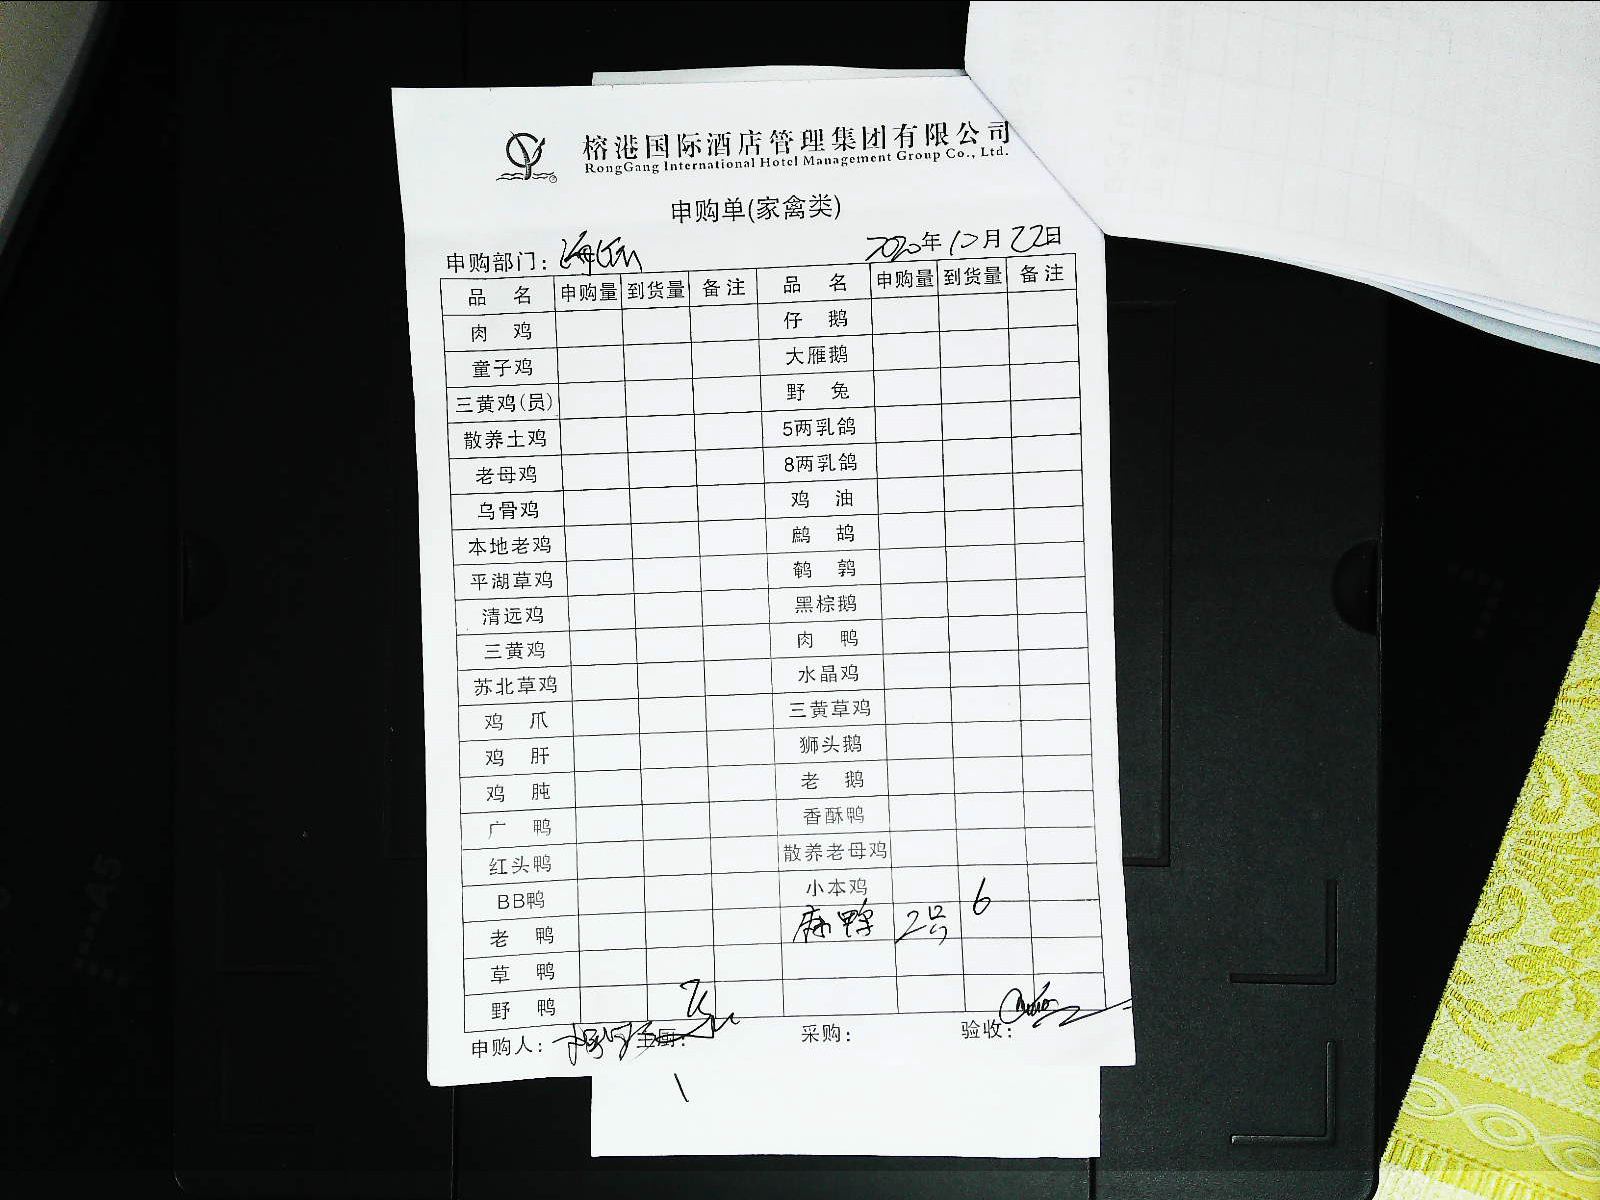 榕港国际酒店管理集团有限公司
RongGang International Hotel Management Group Co., Ltd.
申购单(家禽类)
申购部门：
2020年12月22日
品名 申购量 到货量 备注 品名 申购量 到货量 备注
肉鸡 仔鹅
童子鸡 大雁鹅
三黄鸡(员) 野兔
散养土鸡 5两乳鸽
老母鸡 8两乳鸽
乌骨鸡 鸡油
本地老鸡 鹧鸪
平湖草鸡 鹌鹑
清远鸡 黑棕鹅
三黄鸡 肉鸭
苏北草鸡 水晶鸡
鸡爪 三黄草鸡
鸡肝 狮头鹅
鸡肫 老鹅
广鸭 香酥鸭
红头鸭 散养老母鸡
BB鸭 小本鸡
老鸭 麻鸭 2只 6
草鸭
野鸭
申购人： 主厨： 采购： 验收：